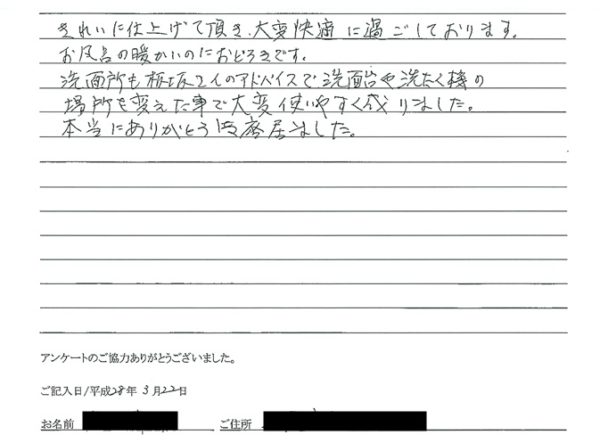 きれいに仕上げて頂き、大変快適に過ごしております。
お風呂の暖かいのにおどろきです。
洗面所も板坂さんのアドバイスで洗面台や洗たく機の
場所を変えた事で大変使いやすく成りました。
本当にありがとう御座居ました。
アンケートのご協力ありがとうございました。
ご記入日/平成28年 3月22日
お名前 ご住所